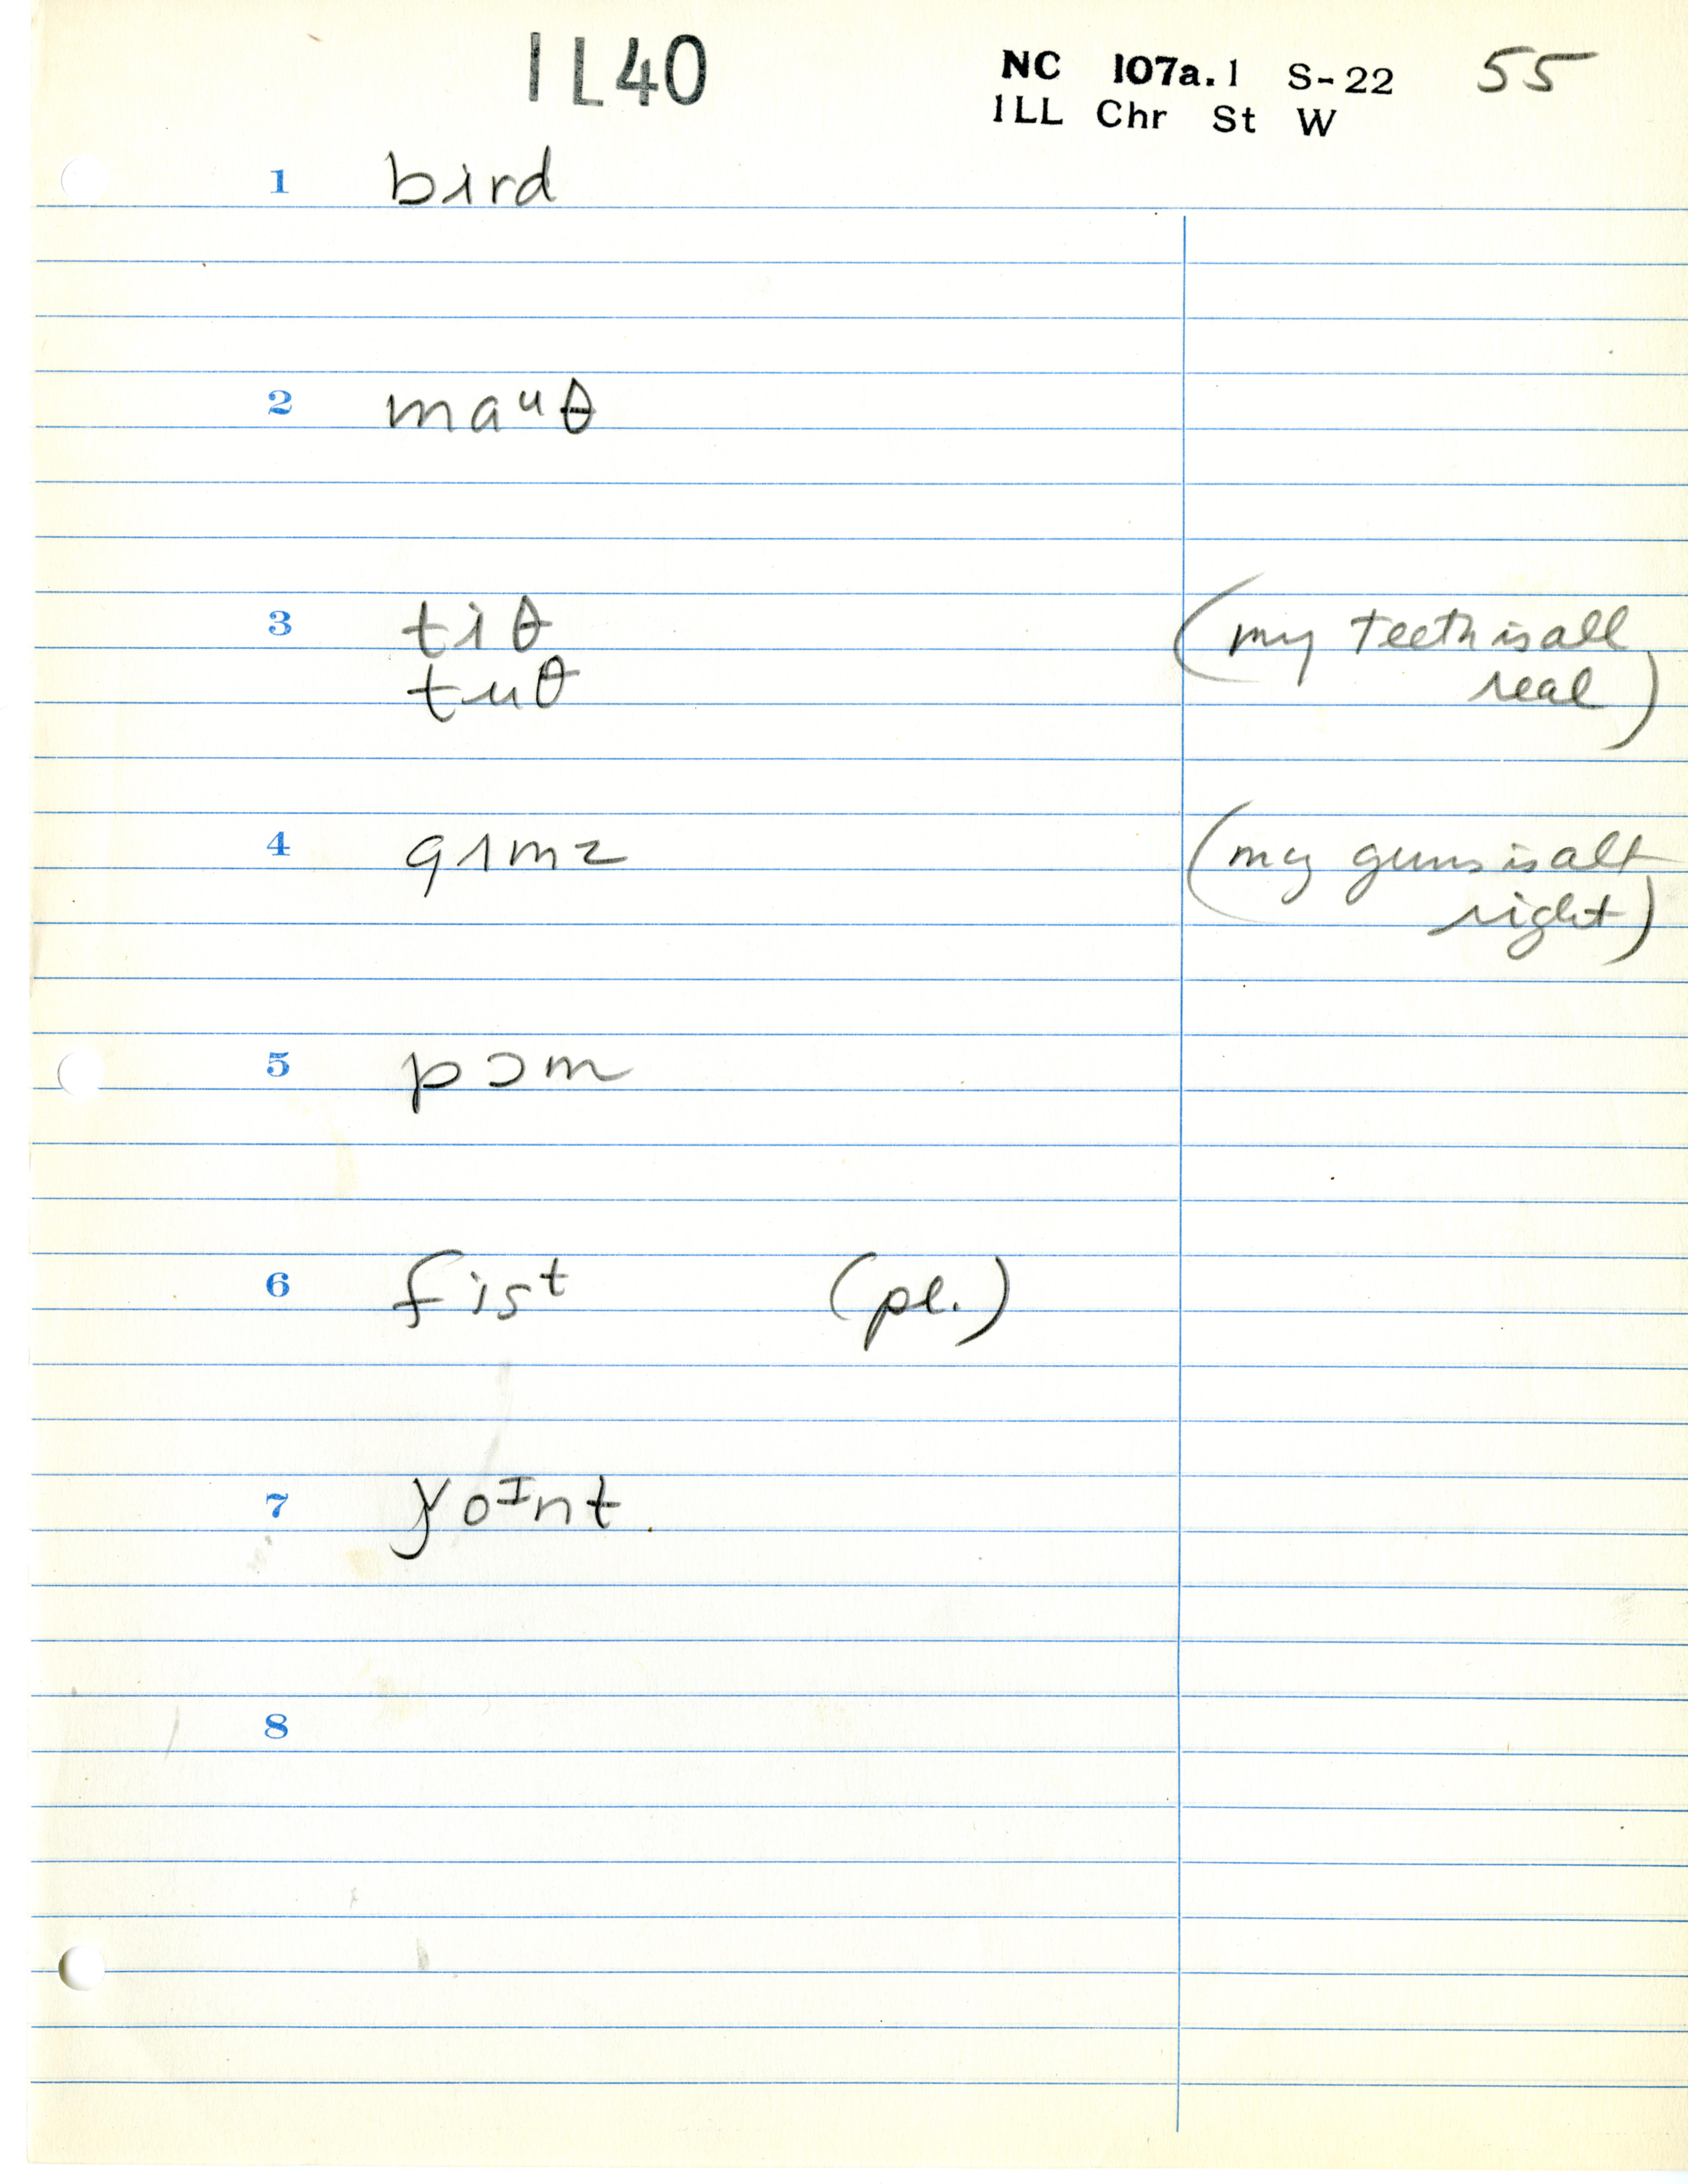 1L40
NC 107a.1 S-22 55
ILL Chr St W
1 bird
2 maᵘθ
3 tiθ (my teeth is all
tuθ real)
4 gɪmz (my gums is all
right)
5 pɔm
6 fisᵗ (pl.)
7 ɣoᴵnt
8